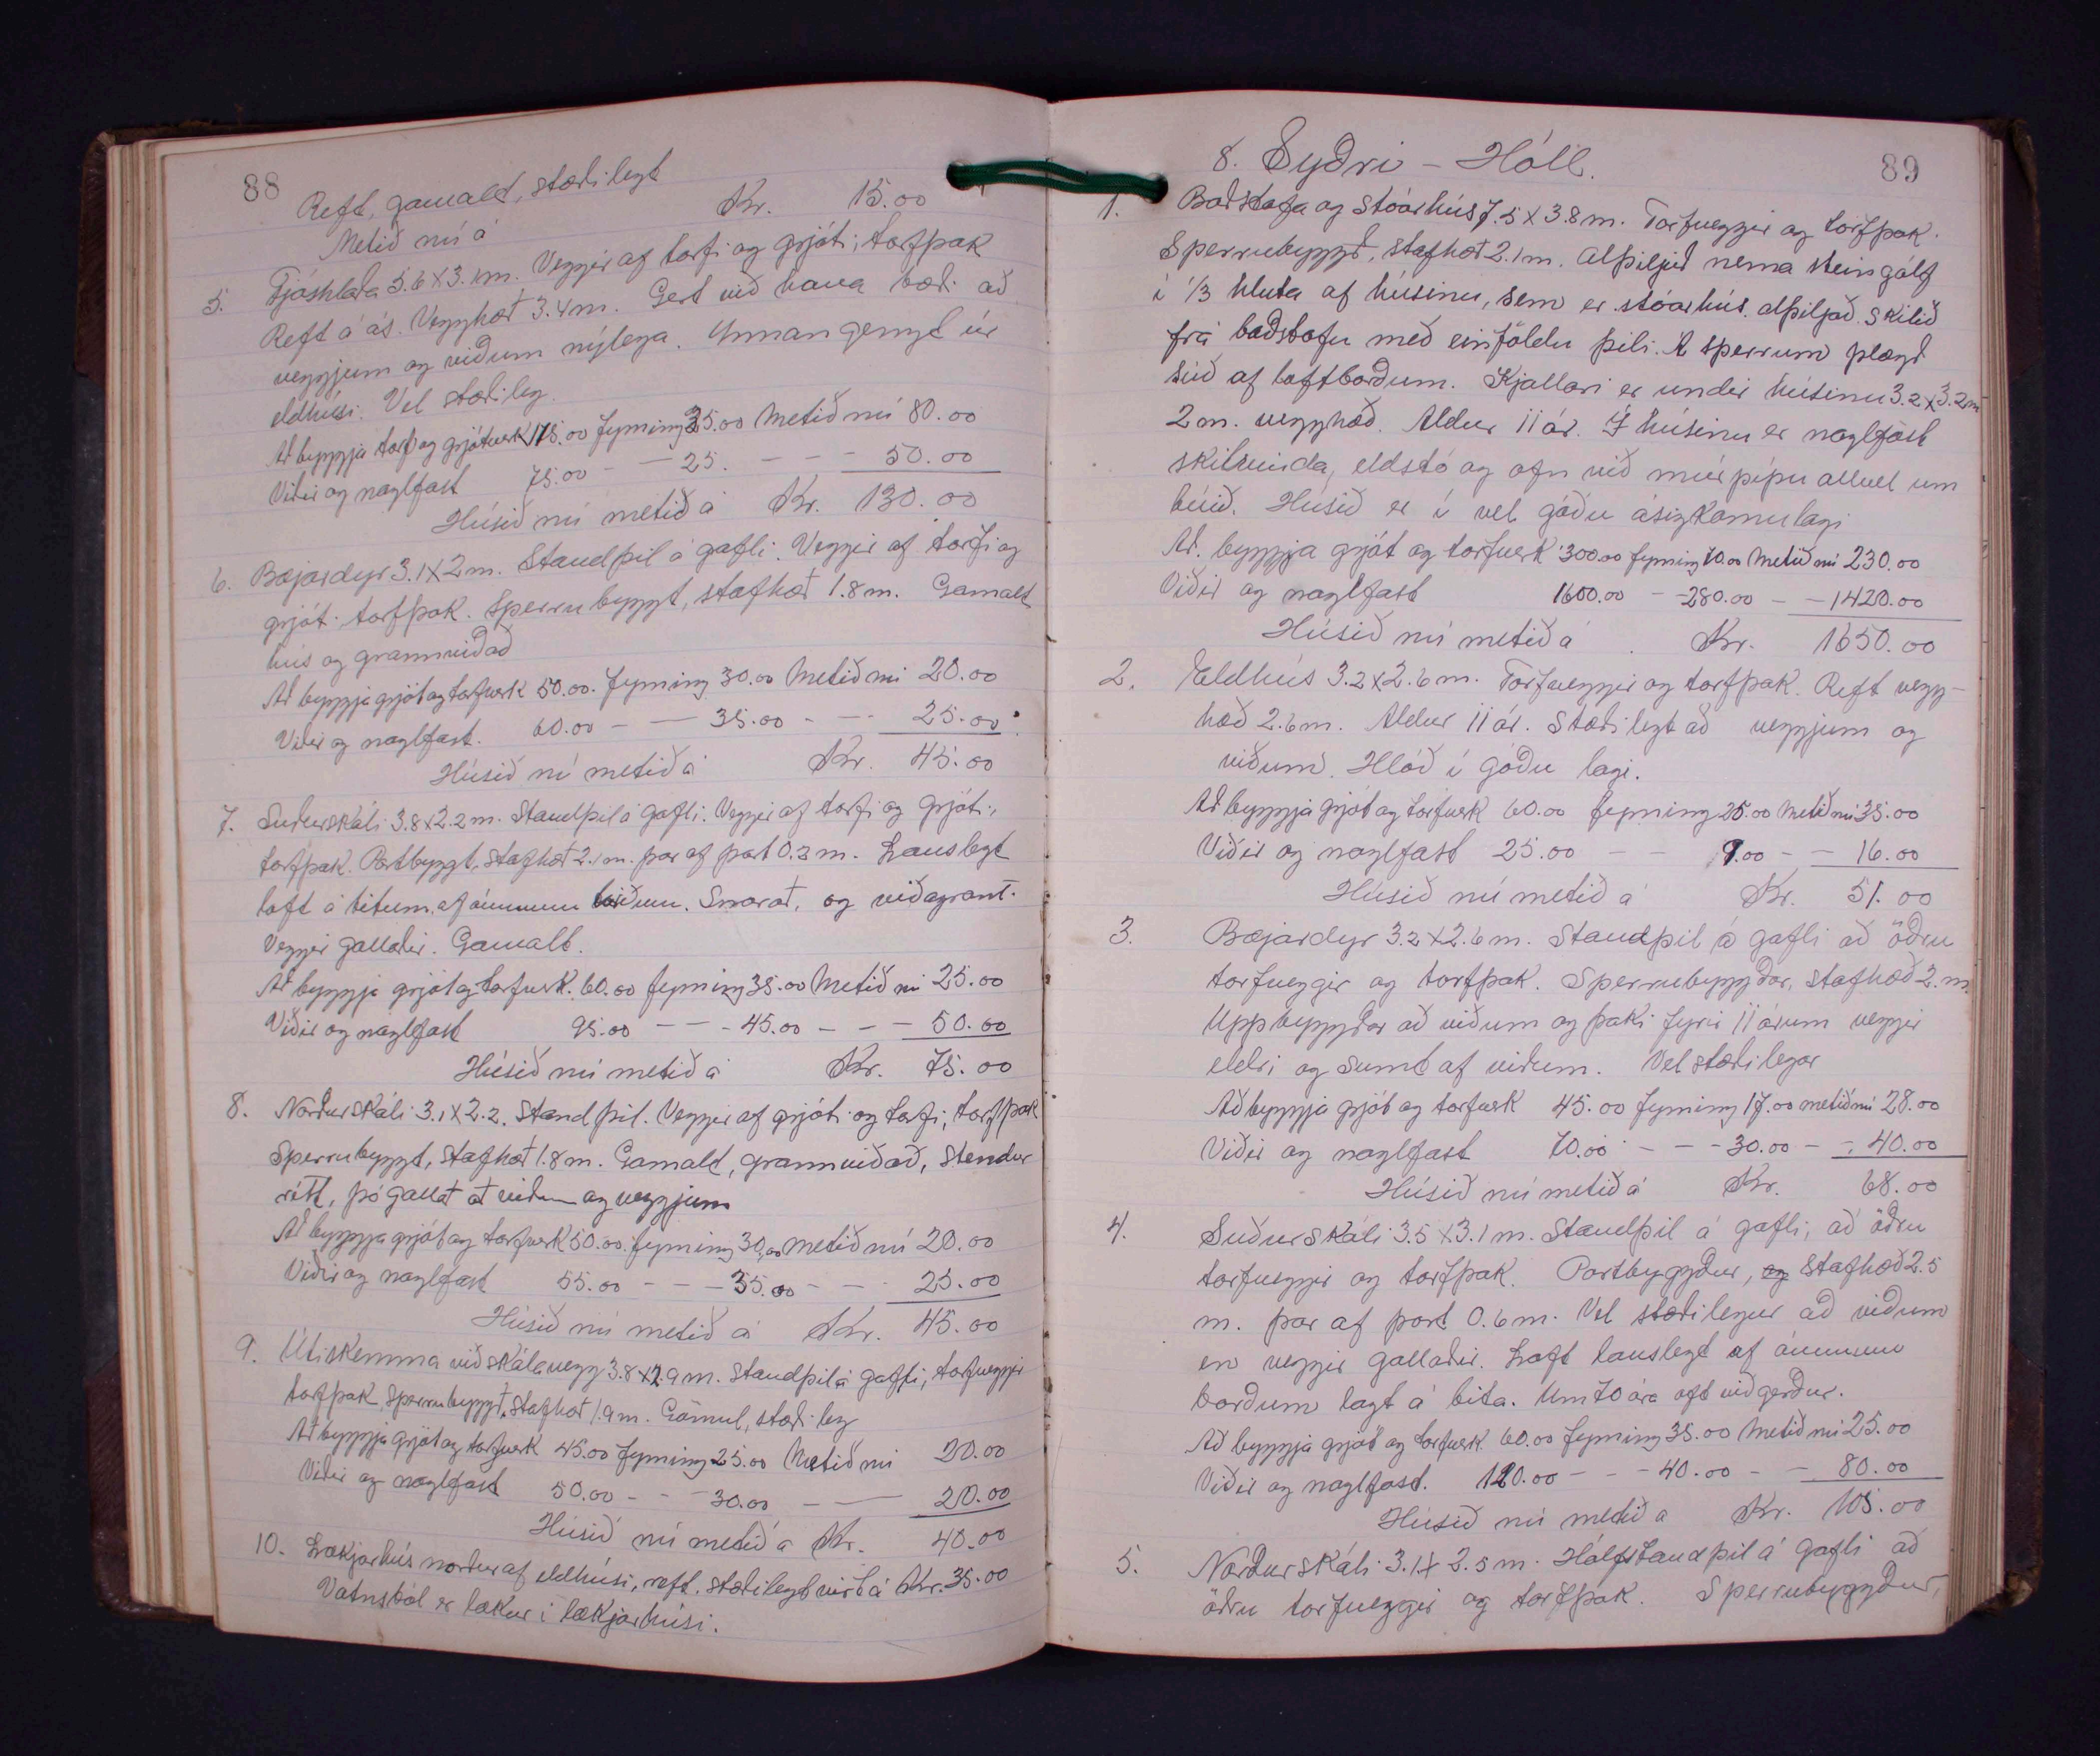 88
Reft, gamalt, stæðilegt
Metið nú á Kr. 15.00
5. Fjóshlaða 5.6x3.1m. Veggir af torfi og grjóti; torfþak
Reft á ás. Vegghæð 3.4m. Gert við hana bæði að
veggjum og viðum nýlega. Innangengt úr
eldhúsi. Vel stæðileg.
Að byggja torf og grjótverk 115.00 fyrning 35.00 Metið nú 80.00
Viðir og naglfast 75.00 - - 25. - - - 50.00
Húsið nú metið á Kr. 130.00
6. Bæjardyr 3.1x2m. Standþil á gafli. Veggir af torfi og
grjóti torfþak. Sperrubyggt, stafhæð 1.8m. Gamalt
hús og grannviðað
Að byggja grjót og torfverk 50.00. fyrning 30.00 Metið nú 20.00
Viðir og naglfast. 60.00 - - 35.00 - - - 25.00
Húsið nú metið á Kr. 45.00
7. Suðurskáli 3.8x2.2m. Standþil á gafli. Veggir af torfi og grjóti,
torfþak. Portbyggt, stafhæð 2.1m. þar af port 0.3m. Lauslegt
loft á bitum, af ónumum borðum. Snarað, og viðagrant.
Veggir gallaðir. Gamalt.
Að byggja grjót og torfverk. 60.00 fyrning 35.00 Metið nú 25.00
Viðir og naglfast 95.00 - - - 45.00 - - - 50.00
Húsið nú metið á Kr. 75.00
8. Norðurskáli 3.1x2.2. Standþil. Veggir af grjóti og torfi, torfþak
Sperrubyggt, stafhæð 1.8m. Gamalt, grannviðað, stendur
rétt, þó gallað að viðum og veggjum
Að byggja grjót og torfverk 50.00. fyrning 30.00 Metið nú 20.00
Viðir og naglfast 55.00 - - - 35.00 - - - 25.00
Húsið nú metið á Kr. 45.00
9. Útiskemma við skálavegg 3.8x2.9m. Standþil á gafli, torfveggir
torfþak, Sperrubyggt, Stafhæð 1.9m. Gömul, stæðileg
Að byggja grjót og torfverk 45.00 fyrning 25.00 Metið nú 20.00
Viðir og naglfast 50.00 - - 30.00 - - 20.00
Húsið nú metið á Kr. 40.00
10. Lækjarhús norður af eldhúsi, reft. stæðilegt virt á Kr. 35.00
Vatnsból er lækur í lækjarhúsi.
89
8. Syðri - Hóll.
1. Baðstofa og stóarhús 7.5x3.8m. Torfveggir og torfþak.
Sperrubyggð, stafhæð 2.1m. Alþiljað nema steingólf
í 1/3 hluta af húsinu, sem er stóarhús. alþiljað. Skilið
frá baðstofu með einföldu þili. Á sperrum plægð
súð af loftborðum. Kjallari er undir húsinu 3.2x3.2m
2m. vegghæð. Aldur 11 ár. Í húsinu er naglföst
skilvinda, eldstó og ofn við múrpípu allvel um
búið. Húsið er í vel góðu ásigkomulagi
Að. byggja grjót og torfverk 300.00 fyrning 70.00 Metið nú 230.00
Viðir og naglfast 1600.00 - - 280.00 - - 1420.00
Húsið nú metið á . Kr. 1650.00
2. Eldhús 3.2x2.6m. Torfveggir og torfþak. Reft vegg-
hæð 2.6m. Aldur 11 ár. Stæðilegt að veggjum og
viðum. Hlóð í góðu lagi.
Að byggja grjót og torfverk 60.00 fyrning 25.00 Metið nú 35.00
Viðir og naglfast 25.00 - - 9.00 - - 16.00
Húsið nú metið á Kr. 51.00
3. Bæjardyr 3.2x2.6m. Standþil á gafli að öðru
torfveggir og torfþak. Sperrubyggðar, stafhæð 2.m.
Uppbyggðar að viðum og þaki fyrir 11 árum veggir
eldri og sumt af viðum. Vel stæðilegar
Að byggja grjót og torfverk 45.00 fyrning 17.00 metið nú 28.00
Viðir og naglfast 70.00 - - - 30.00 - - 40.00
Húsið nú metið á Kr. 68.00
4. Suðurskáli 3.5x3.1m. Standþil á gafli, að öðru
torfveggir og torfþak. Portbygður, og Stafhæð 2.5
m. þar af port 0.6m. Vel stæðilegur að viðum
en veggir gallaðir. Loft lauslegt af ónumum
borðum lagt á bita. Um 70 ára oft viðgerður.
Að byggja grjót og torfverk. 60.00 fyrning 35.00 Metið nú 25.00
Viðir og naglfast. 120.00 - - - 40.00 - - 80.00
Húsið nú metið á Kr. 105.00
5. Norðurskáli 3.1x2.5m. Hálfstandþil á gafli að
öðru torfveggir og torfþak. Sperrubygður,